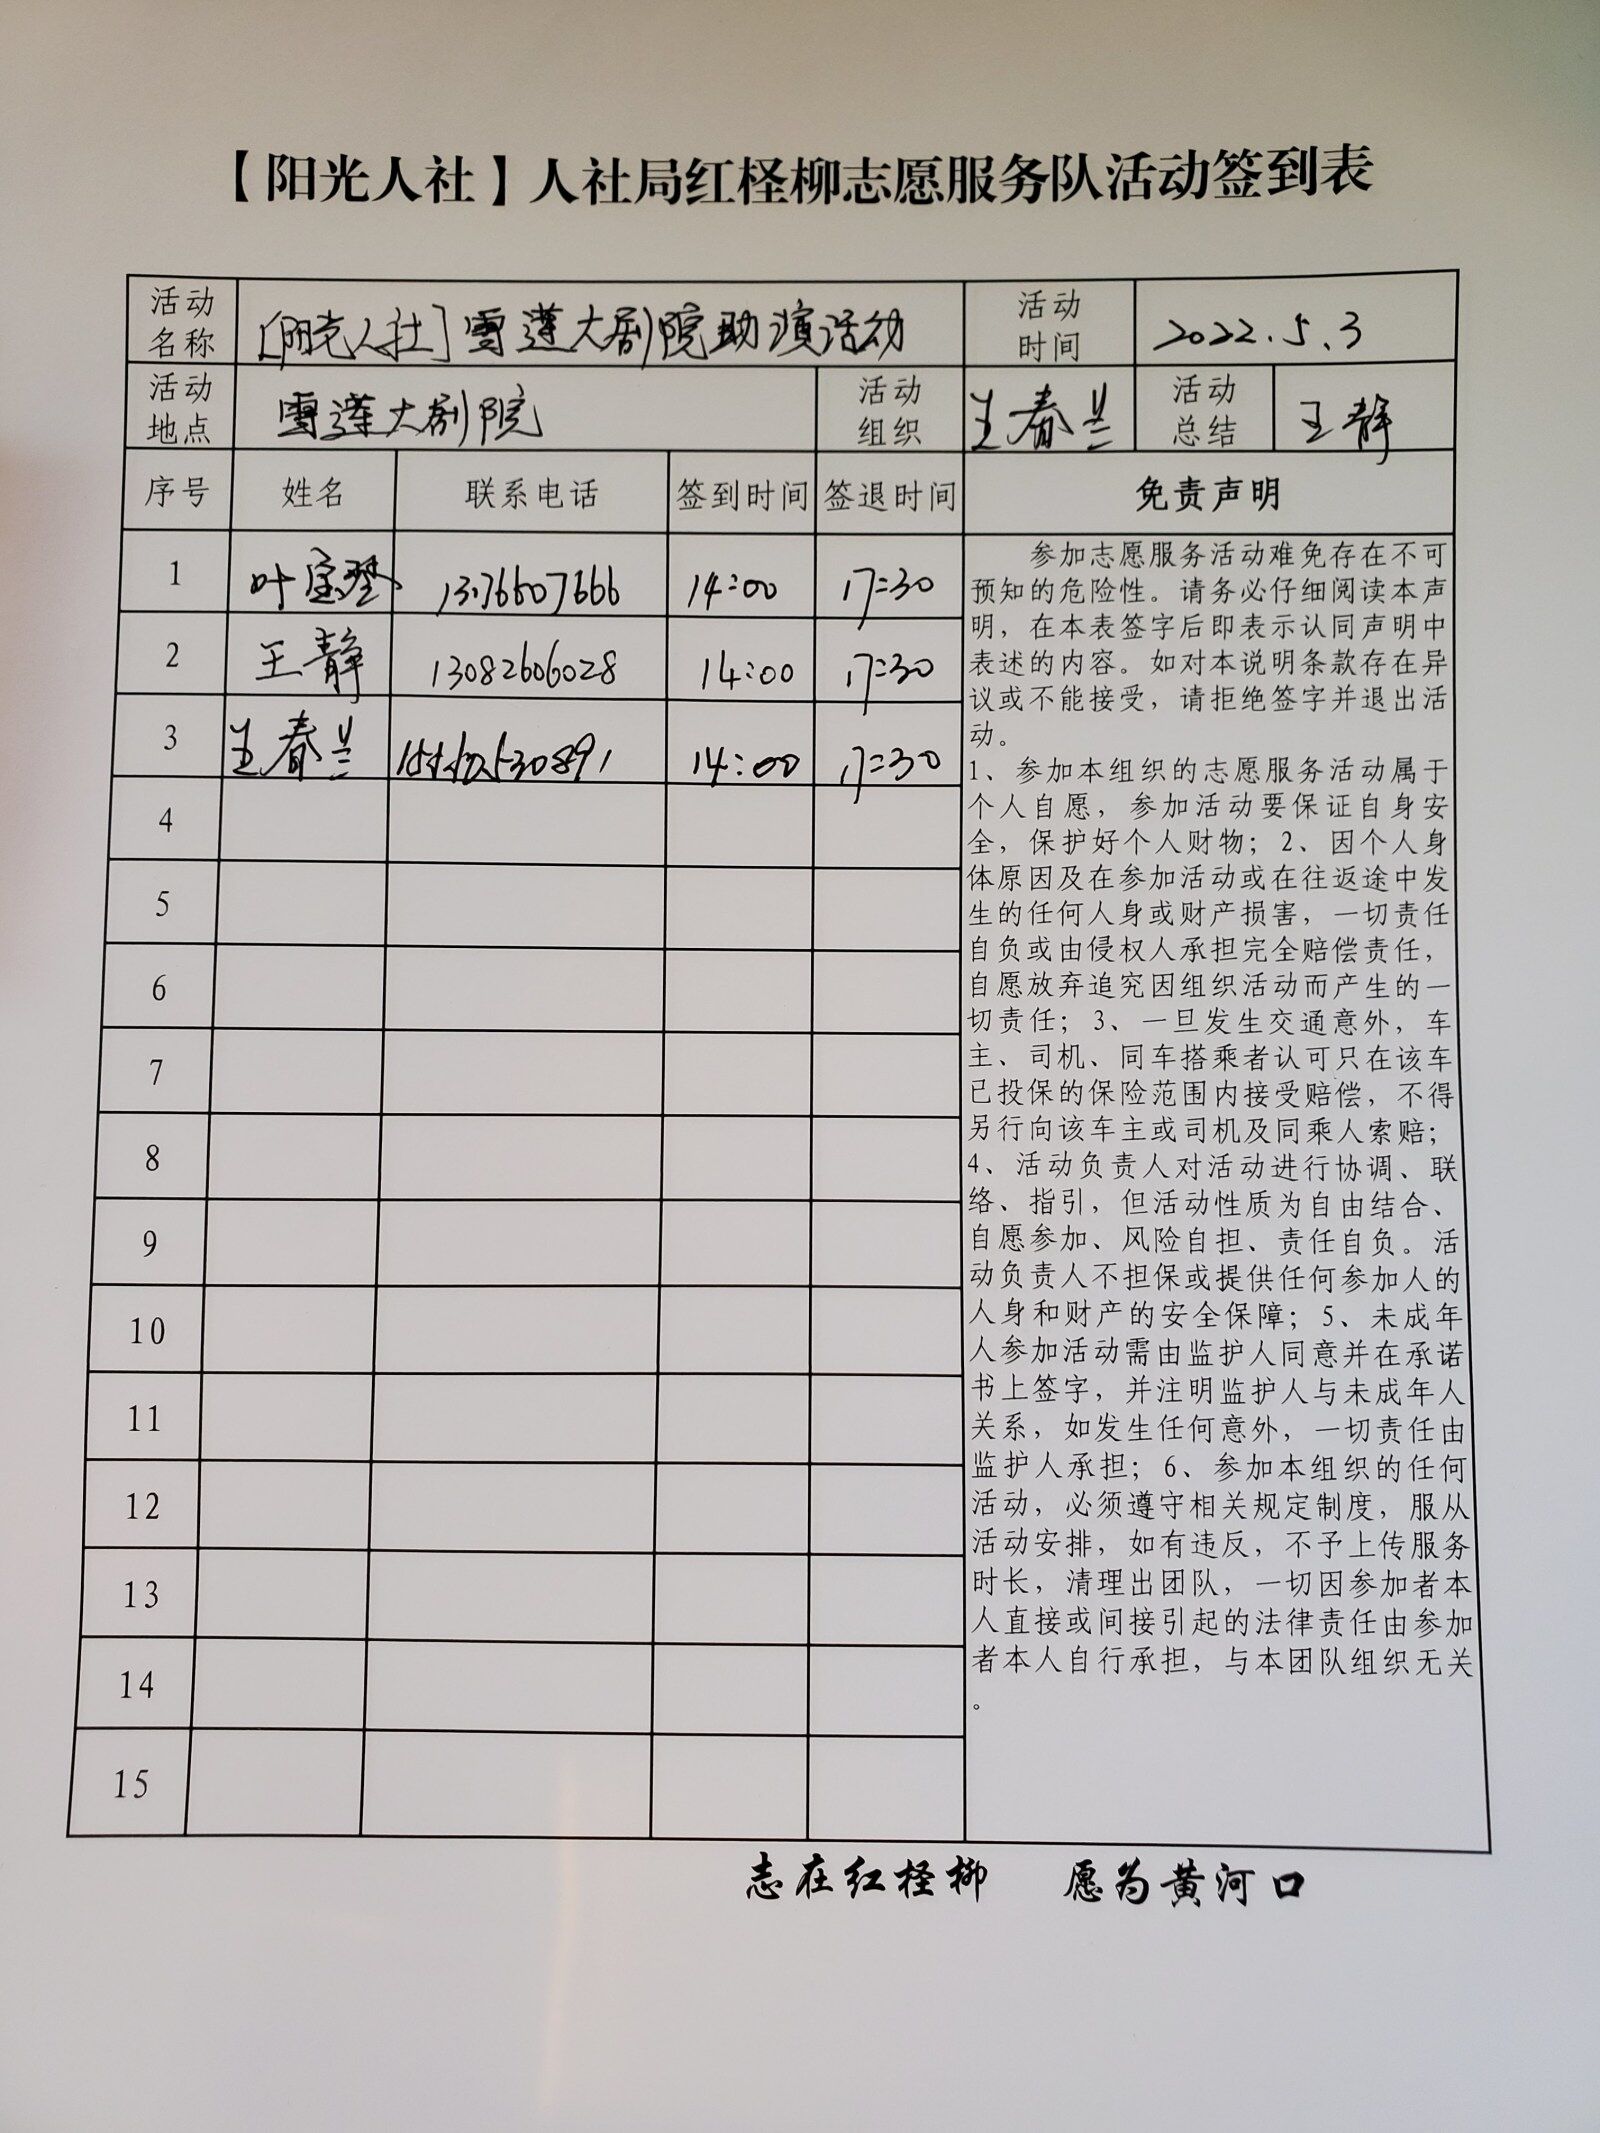 【阳光人社】人社局红柽柳志愿服务队活动签到表
活动名称 [阳光人社]雪莲大剧院助演活动 活动时间 2022.5.3
活动地点 雪莲大剧院 活动组织 王春兰 活动总结 王静
序号 姓名 联系电话 签到时间 签退时间 免责声明
1 叶宝 14:00 17:30
2 王静 13082606028 14:00 17:30
3 王春兰 14:00 17:30
4
5
6
7
8
9
10
11
12
13
14
15
参加志愿服务活动难免存在不可
预知的危险性。请务必仔细阅读本声
明，在本表签字后即表示认同声明中
表述的内容。如对本说明条款存在异
议或不能接受，请拒绝签字并退出活
动。
1、参加本组织的志愿服务活动属于
个人自愿，参加活动要保证自身安
全，保护好个人财物；2、因个人身
体原因及在参加活动或在往返途中发
生的任何人身或财产损害，一切责任
自负或由侵权人承担完全赔偿责任，
自愿放弃追究因组织活动而产生的一
切责任；3、一旦发生交通意外，车
主、司机、同车搭乘者认可只在该车
已投保的保险范围内接受赔偿，不得
另行向该车主或司机及同乘人索赔；
4、活动负责人对活动进行协调、联
络、指引，但活动性质为自由结合、
自愿参加、风险自担、责任自负。活
动负责人不担保或提供任何参加人的
人身和财产的安全保障；5、未成年
人参加活动需由监护人同意并在承诺
书上签字，并注明监护人与未成年人
关系，如发生任何意外，一切责任由
监护人承担；6、参加本组织的任何
活动，必须遵守相关规定制度，服从
活动安排，如有违反，不予上传服务
时长，清理出团队，一切因参加者本
人直接或间接引起的法律责任由参加
者本人自行承担，与本团队组织无关
。
志在红柽柳 愿为黄河口